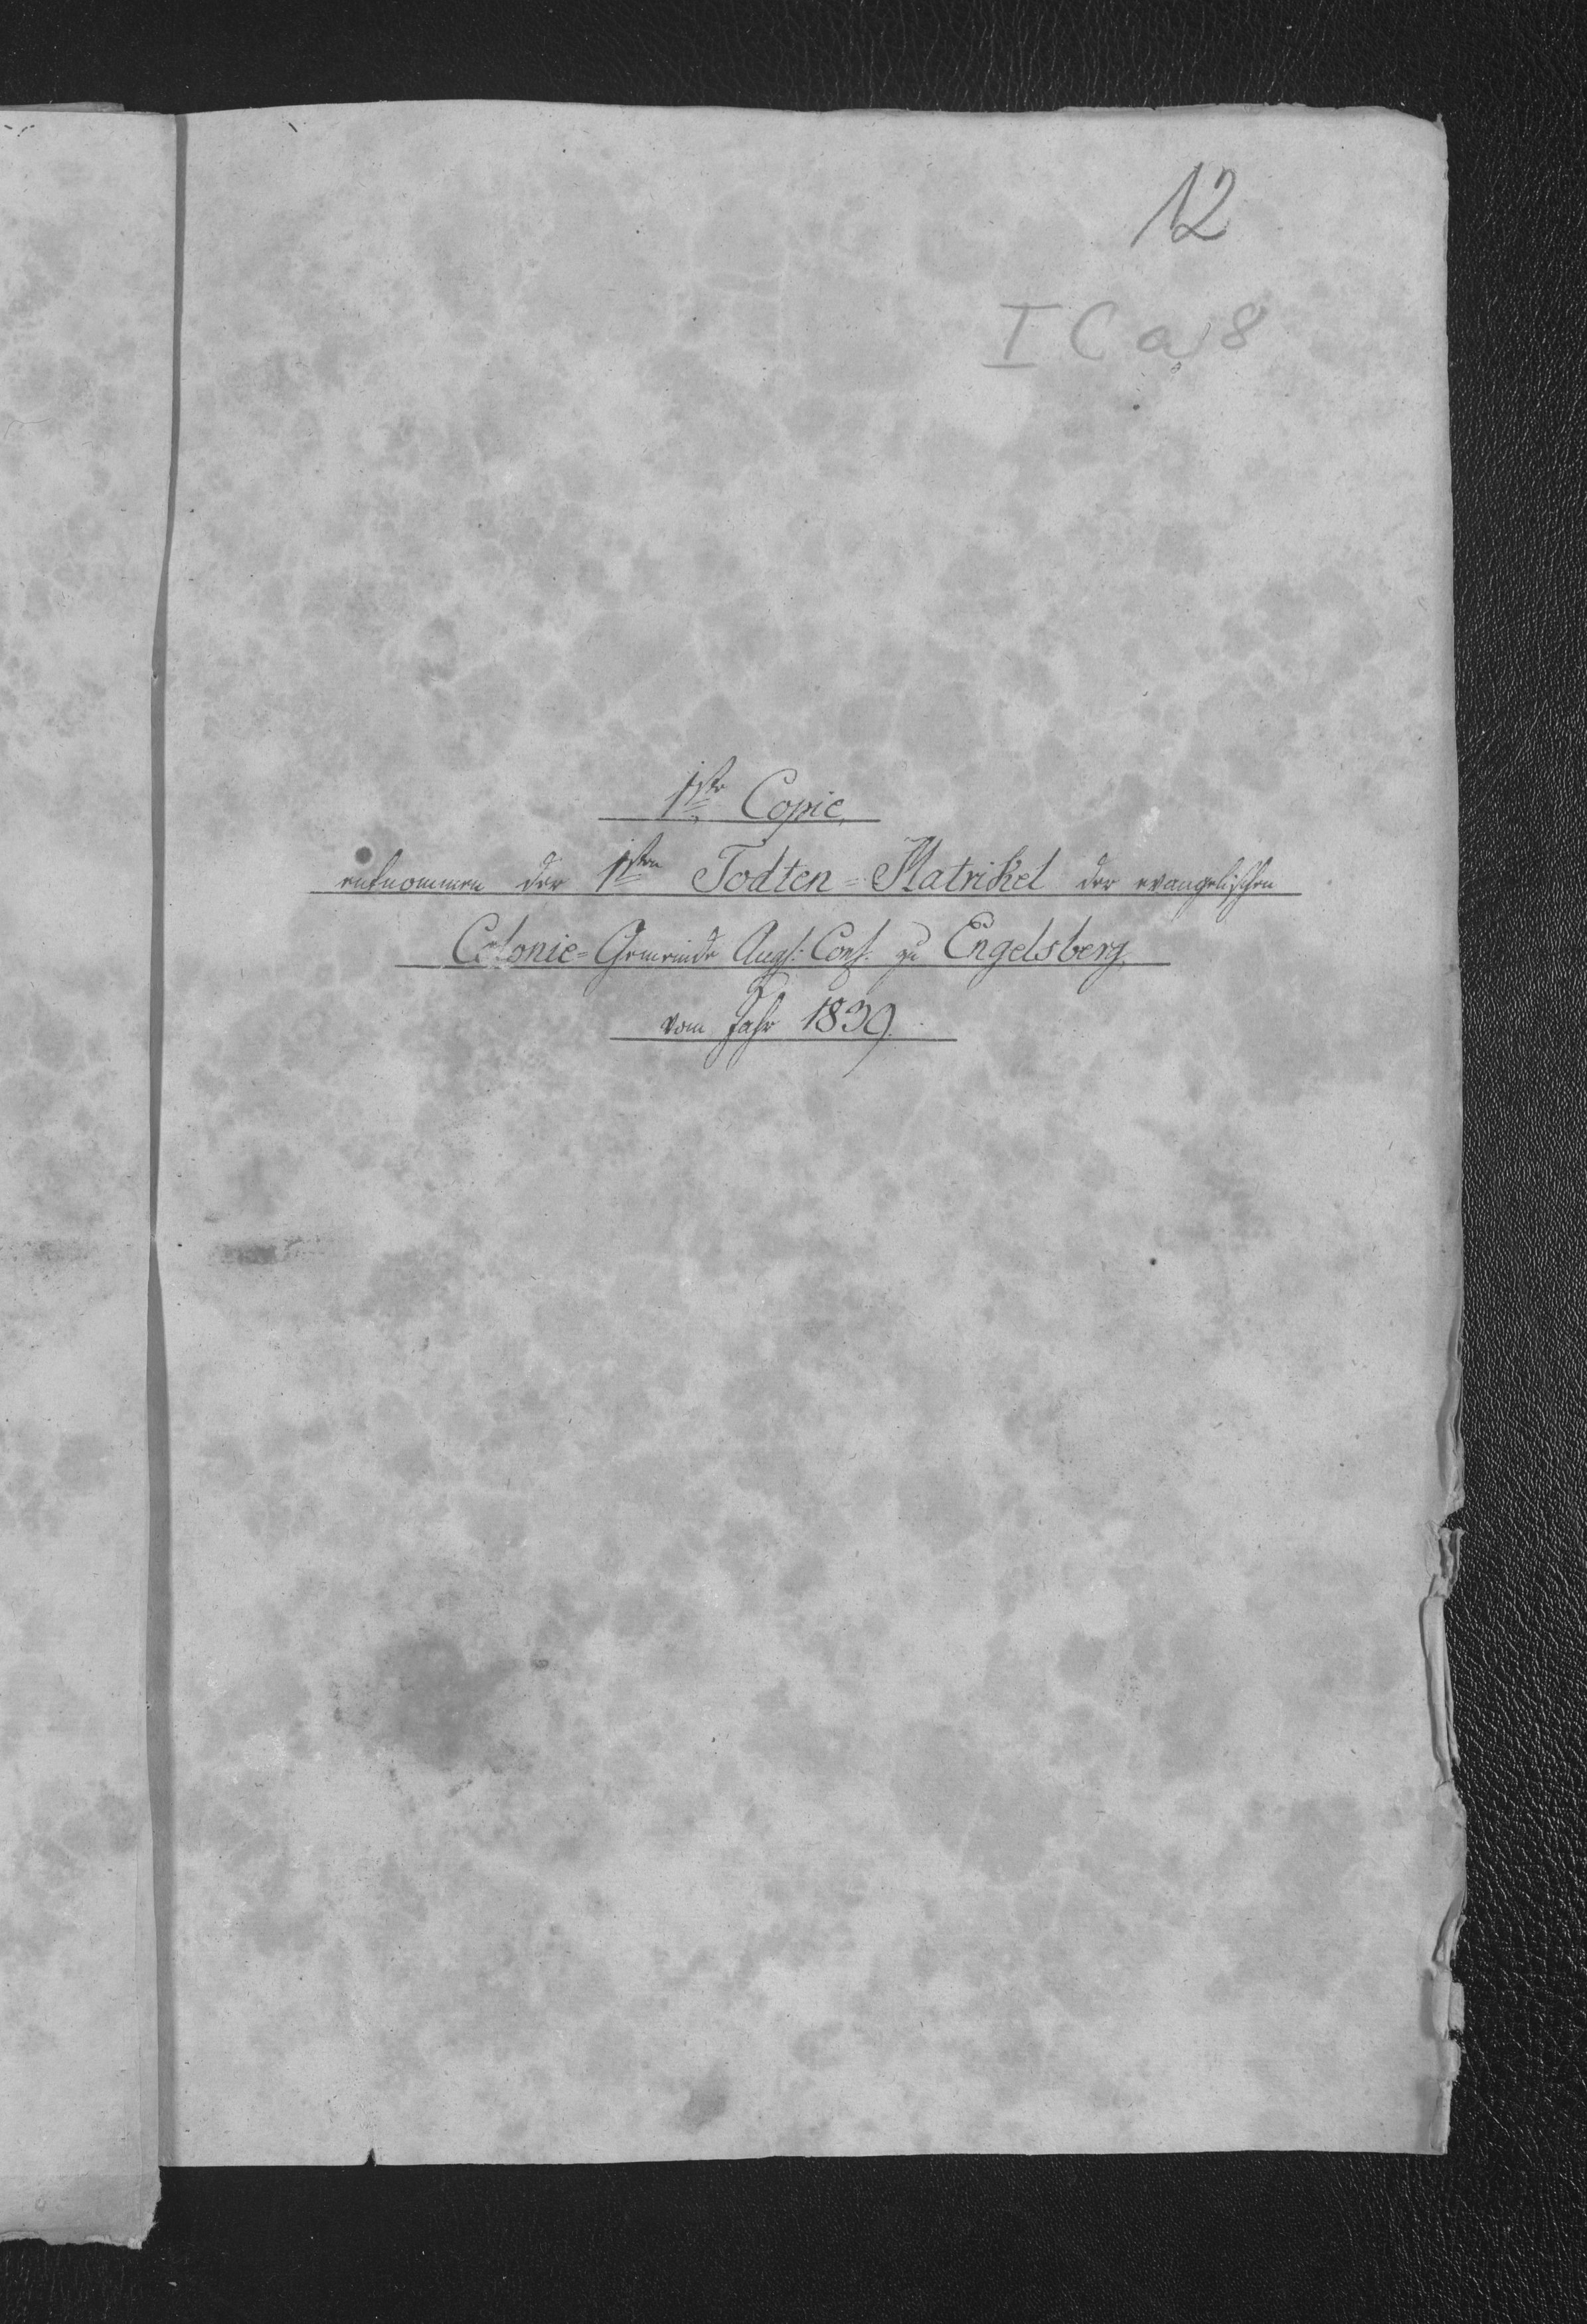 12
I C a) 8
1ste Copie,
entnommen der 1sten Todten-Matrikel der evangelischen
Colonie-Gemeinde Augs: Conf: zu Engelsberg,
vom Jahr 1839.